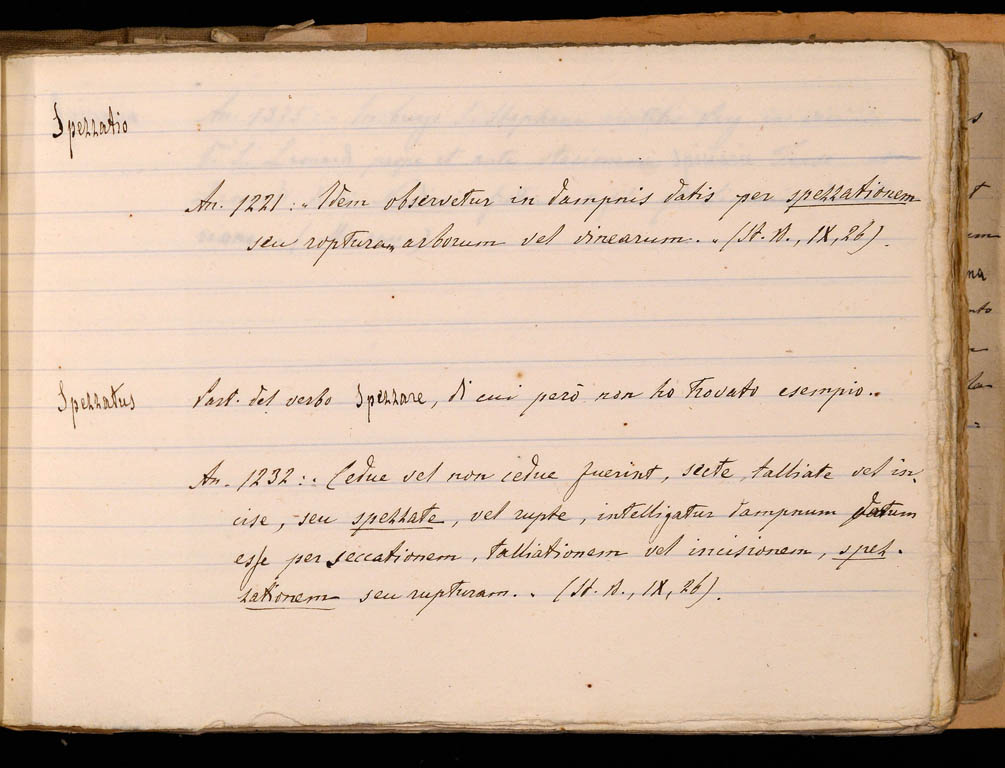 Spezzatio
An. 1221 : Idem observetur in dampnis datis per spezzationem
seu ropturam arborum vel vinearum. „ (St. B., IX, 26).
Spezzatus Part. del verbo Spezzare, di cui però non ho trovato esempio..
An. 1232 : „ Cedue vel non cedue fuerint, secte, talliate vel in-
cise, seu spezzate, vel rupte, intelligatur dampnum datum
esse per seccationem, talliationem vel incisionem, spez-
zationem seu rupturam. „ (St. B., IX, 26).